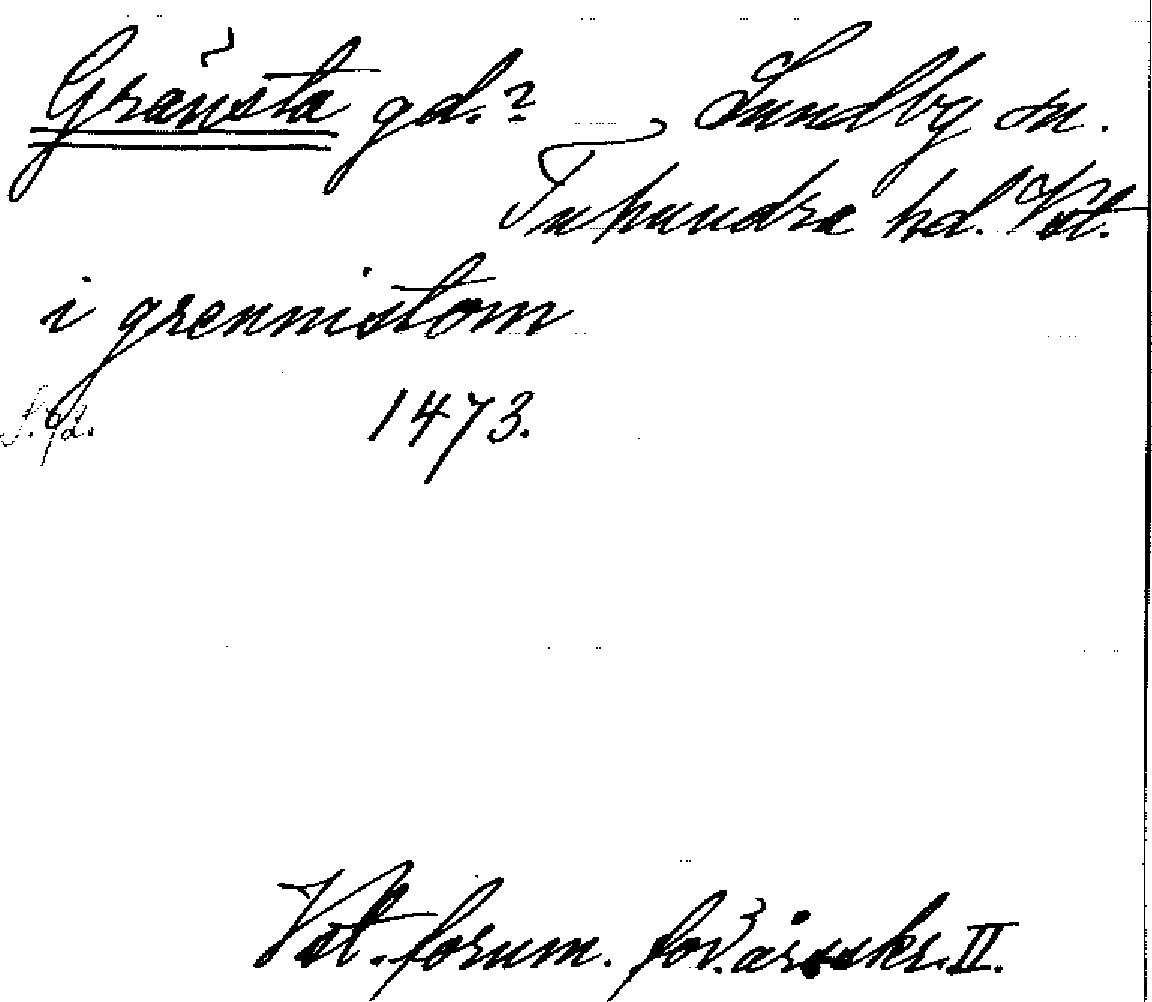 Gränsta gd.? Lundby sn.
Tuhundra hd. Vst.
i grennistom
1473.
Vst. fornm. för. årsskr. II.